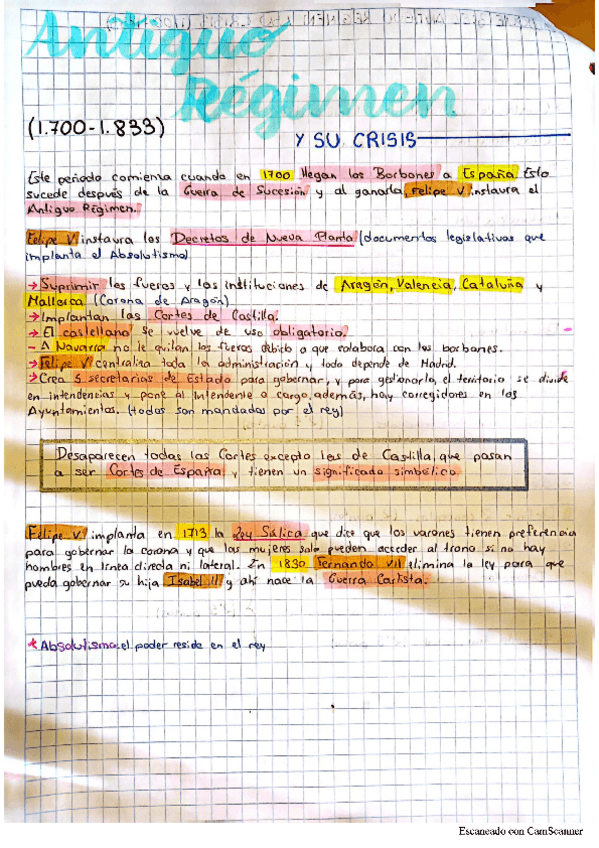 Antiguo
Régimen
(1.700-1.833)
Y SU CRISIS
Este periodo comienza cuando en 1700 llegan los Borbones a España Esto
sucede después de la Guerra de Sucesión y al ganarla Felipe V instaura el
Antiguo Régimen.
Felipe V instaura los Decretos de Nueva Planta (documentos legislativos que
implanta el Absolutismo)
→ Suprimir los fueros y las instituciones de Aragón, Valencia, Cataluña y
Mallorca (Corona de Aragón)
→ Implantan las Cortes de Castilla.
→ El castellano se vuelve de uso obligatorio.
- A Navarra no le quitan los fueros debido a que colabora con los borbones.
→ Felipe V centraliza toda la administración y todo depende de Madrid.
→ Crea 5 secretarías de Estado para gobernar, y para gestionarlo, el territorio se divide
en intendencias y pone al intendente a cargo, además, hay corregidores en los
Ayuntamientos. (todos son mandados por el rey)
Desaparecen todas las Cortes excepto las de Castilla, que pasan
a ser Cortes de España y tienen un significado simbólico
Felipe V implanta en 1713 la Ley Sálica que dice que los varones tienen preferencia
para gobernar la corona y que las mujeres solo pueden acceder al trono si no hay
hombres en línea directa ni lateral. En 1830 Fernando VII elimina la ley para que
pueda gobernar su hija Isabel II y ahí nace la Guerra Carlista.
* Absolutismo: el poder reside en el rey
Escaneado con CamScanner